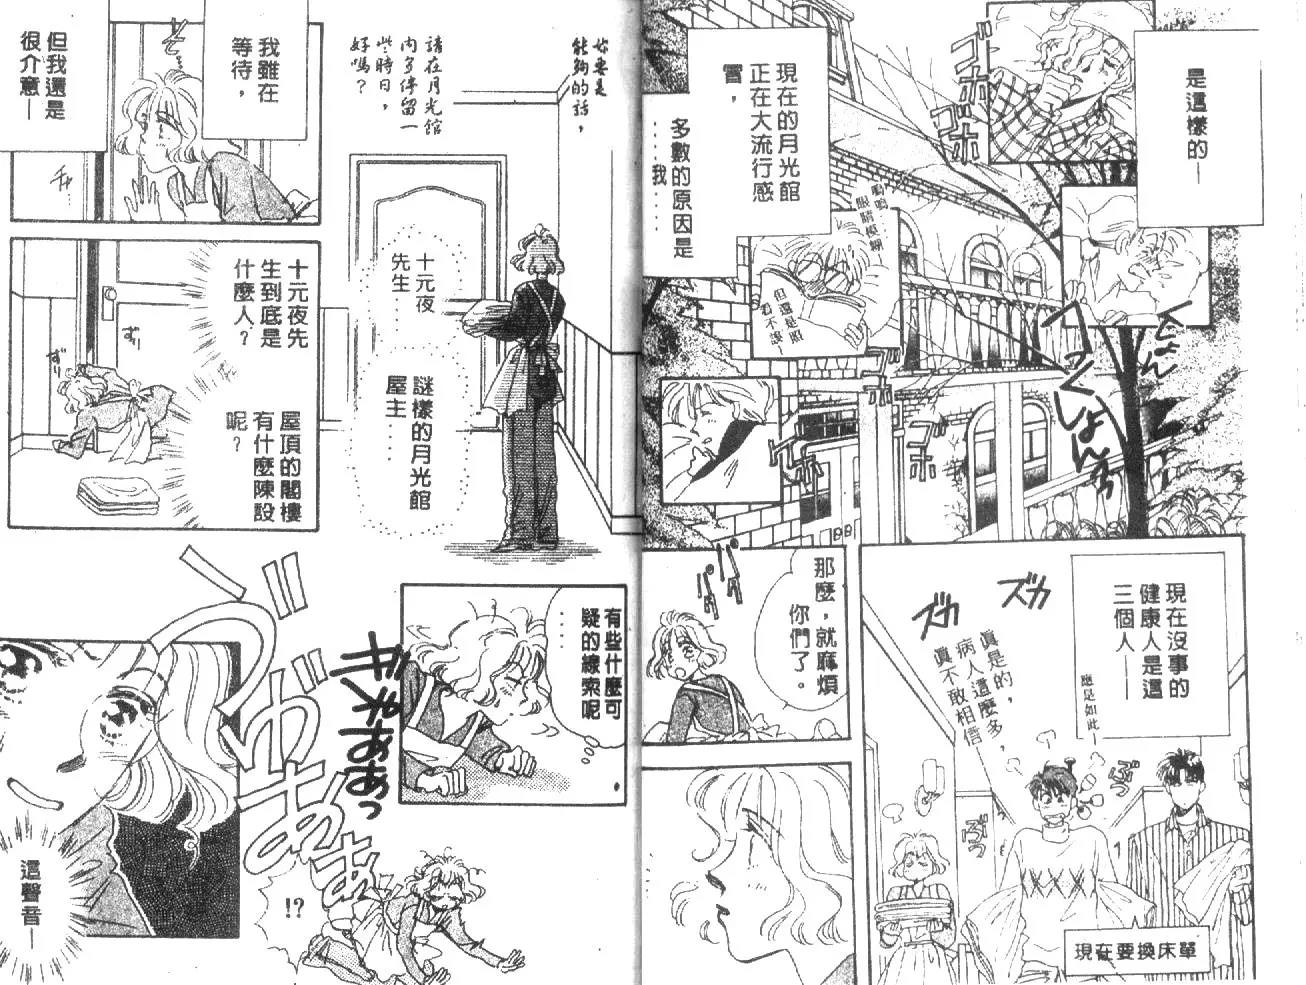 是這樣的—
ゴホ
ゴホ
現在的月光館
正在大流行感
冒，
多數的原因是
……我……
嗚嗚
眼睛模糊—
但還是照
看不誤—
へっくしょん
くしょん
ゴホ
ゴホ
現在沒事的
健康人是這
三個人——
應是如此—
ズカ
ズカ
真是的，
病人這麼多，
真不敢相信
ぶっ
ぶつ
現在要換床單
那麼，就麻煩
你們了。
パパ
妳要是
能夠的話，
請在月光館
內多停留一
些時日，
好嗎？
十元夜
先生…
謎樣的月光館
屋主…
我雖在
等待，
但我還是
很介意—
十元夜先
生到底是
什麼人？
屋頂的閣樓
有什麼陳設
呢？
ずり
ずり
有些什麼可
疑的線索呢
……
ギャああっ
ぶぎゃあああ
!?
這聲音—